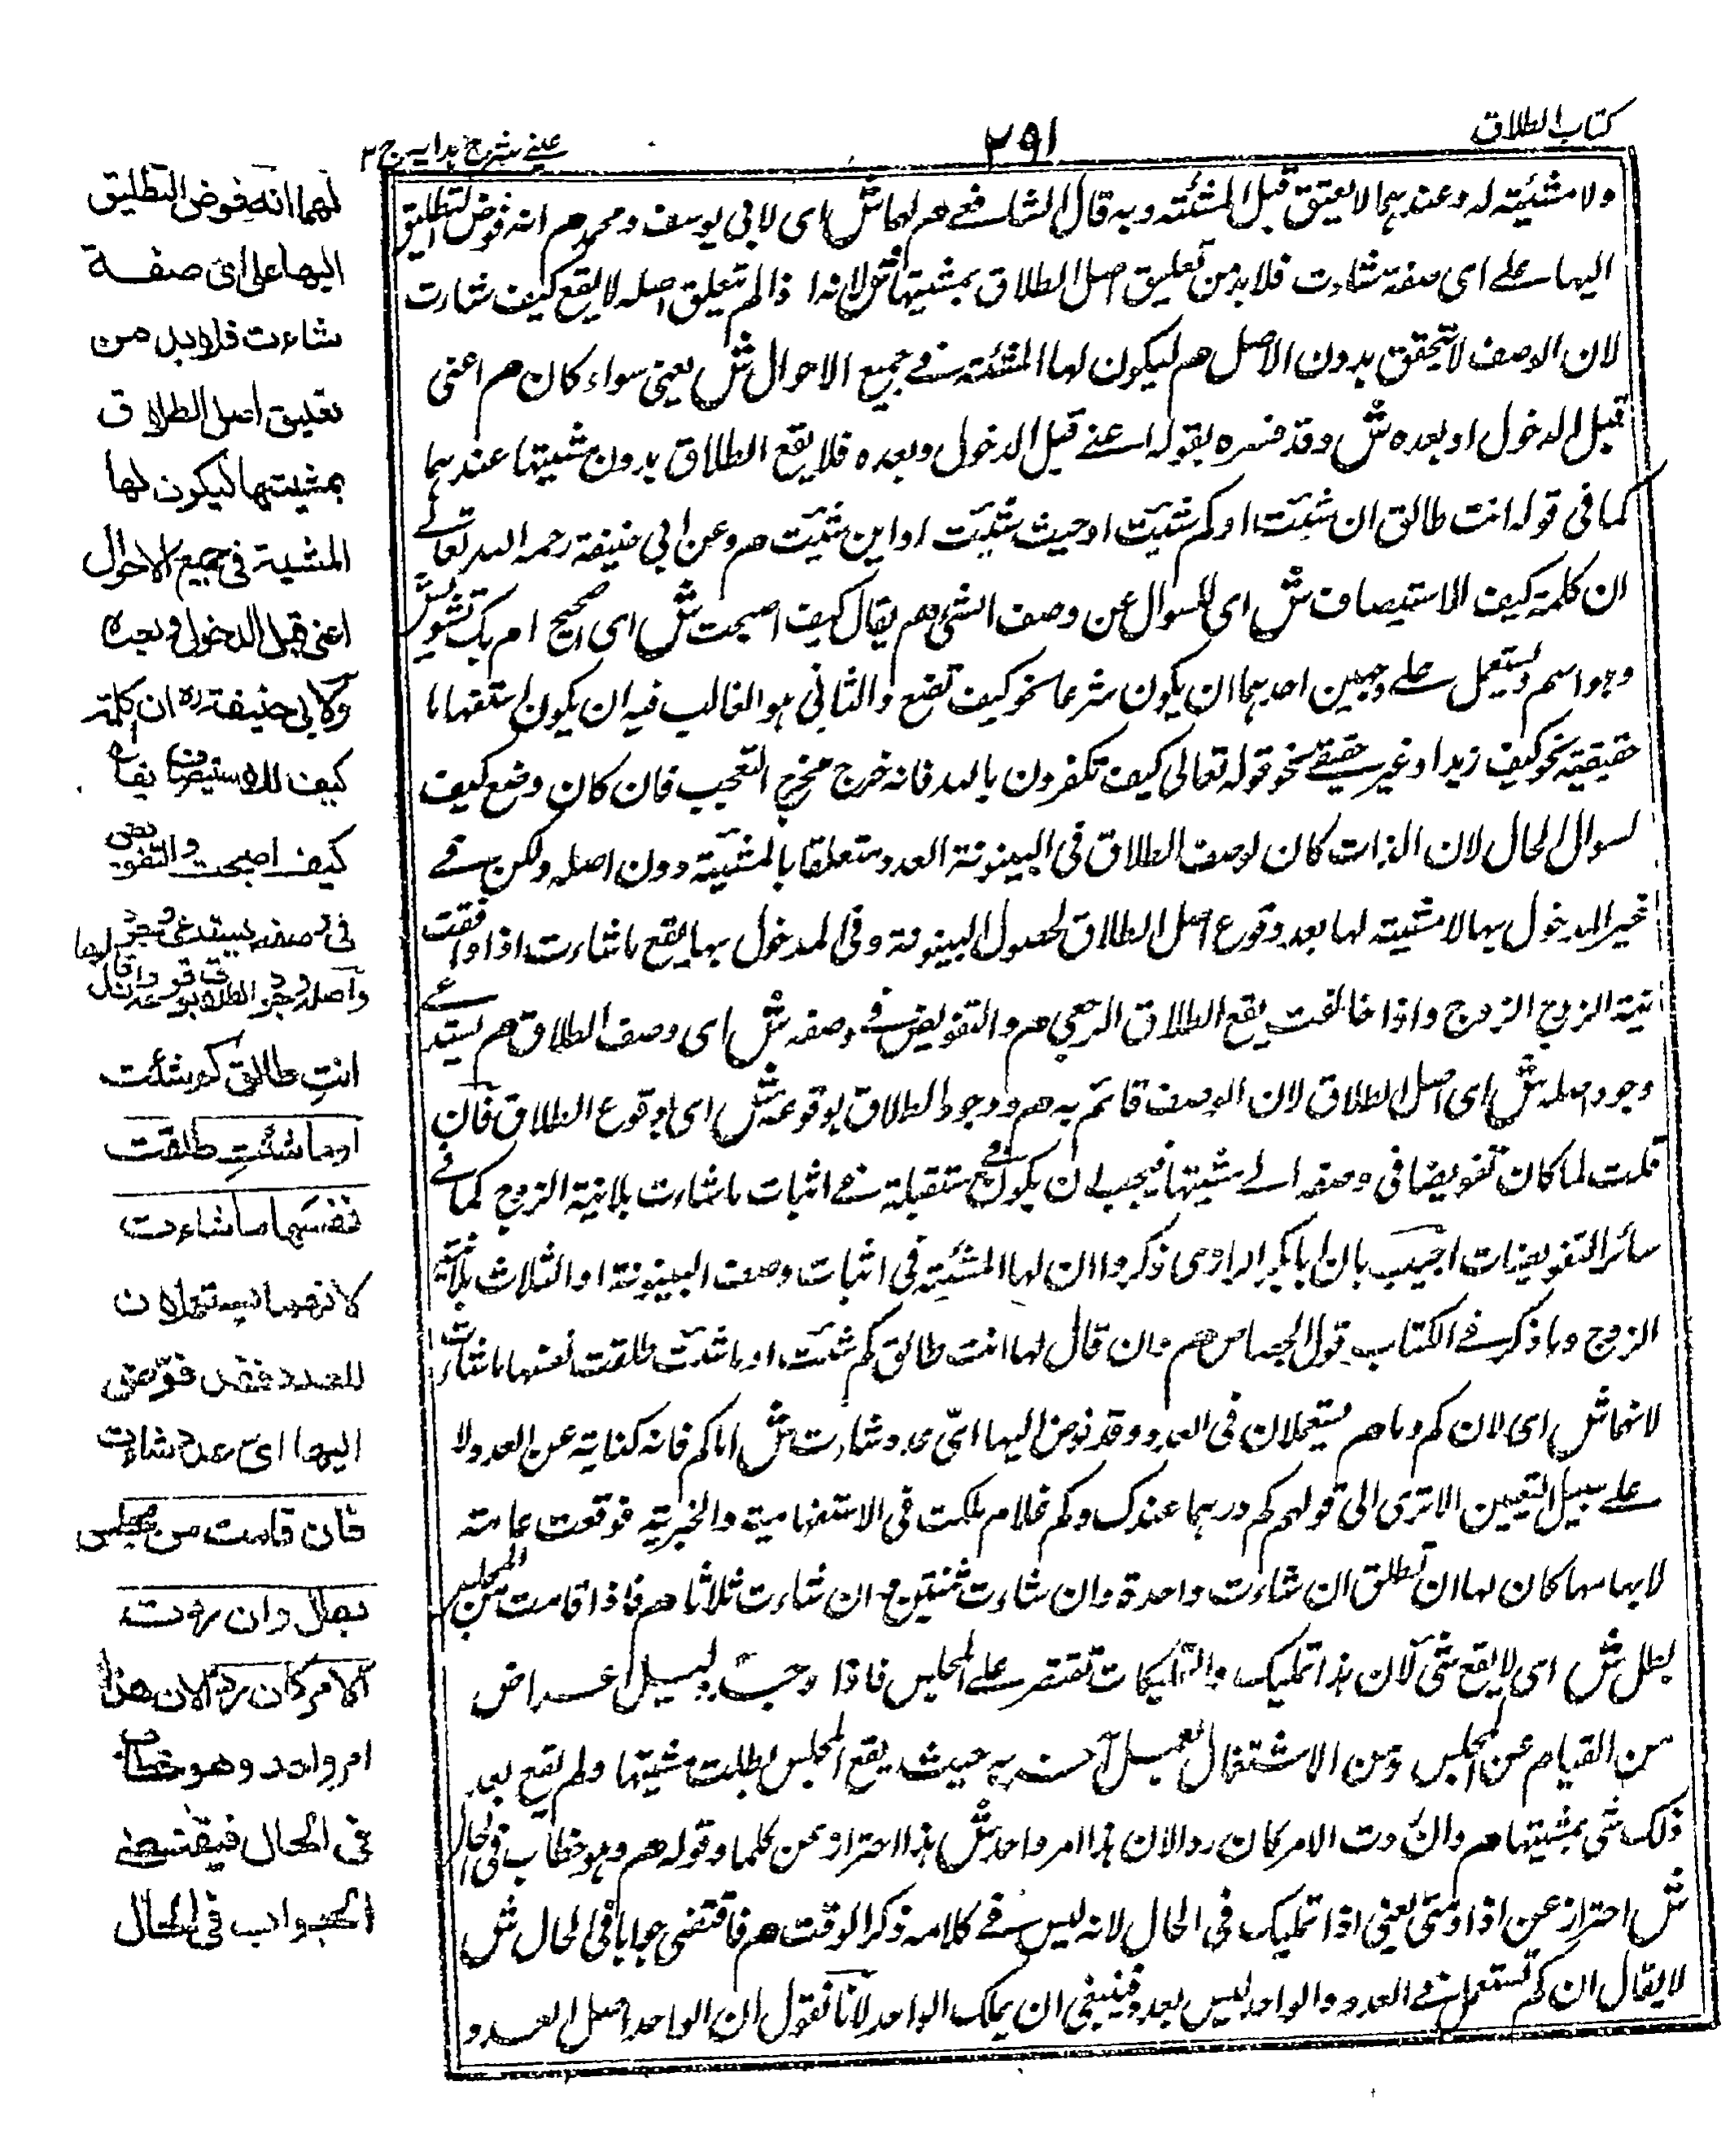 كتاب الطلاق
٢٩١
عينى شرح هدايه ج ٢
ولا مشيئته له وعندهما لا يعتق قبل المشئته وبه قال الشافعے هم لهما ش اى لابى يوسف ومحمد هم انه فوض التطليق
اليها علے اى صفة شاءت فلا بد من تعليق اصل الطلاق بمشيتها ش لانه اذا لم تتعلق اصله لا يقع كيف شاءت
لان الوصف لا يتحقق بدون الاصل هم ليكون لها المشئته فے جميع الاحوال ش يعنى سواء كان هم اعنى
قبل الدخول او بعده ش وقد فسره بقوله اعنے قبل الدخول وبعده فلا يقع الطلاق بدون مشيتها عندهما
كما فى قوله انت طالق ان شئت او كم شئت او حيث شئت او اين شئت هم وعن ابى حنيفة رحمه الله تعالے
ان كلمة كيف للاستيصاف ش اى للسوال عن وصف الشئ هم يقال كيف اصبحت ش اى صحيح ام بك تشويش
وهو اسم يستعمل علے وجهين احدهما ان يكون شرطا نحو كيف تصنع والثانى هو الغالب فيه ان يكون استفهاما
حقيقية نحو كيف زيد او غير حقيقے نحو قوله تعالى كيف تكفرون بالله فانه خرج مخرج التعجب فان كان وضع كيف
لسوال الحال لان الذات كان لوصف الطلاق فى البينونة العدد متعلقا بالمشية دون اصله ولكن فے
غير المدخول بها لا مشيته لها بعد وقوع اصل الطلاق لحصول البينونة وفى المدخول بها يقع ما شاءت اذا وافقت
نية الزوج الزوج واذا خالفت يقع الطلاق الرجعى هم والتفويض فے وصفه ش اى وصف الطلاق هم يستدعے
وجود اصله ش اى اصل الطلاق لان الوصف قائم به هم ووجود الطلاق بوقوعه ش اى بوقوع الطلاق فان
قلت لما كان تفويضا فى وصفه الے مشيتها فيجب ان يكون مستقبلة فے اثبات ما شاءت بلا نية الزوج كما فے
سائر التفويضات اجيب بان ابا بكر الرازى ذكروا ان لها المشئية فى اثبات وصف البينونة او الثلاث بلا نية
الزوج وما ذكر فے الكتاب قول الجصاص هم وان قال لها انت طالق كم شئت او ما شئت طلقت نفسها ما شاءت
لانهما ش اى لان كم وما هم يستعملان فى العدد وقد فوض اليها اىّ عدد شاءت ش اما كم فانه كناية عن العدد لا
علے سبيل التعيين الا ترى الى قولهم كم درهما عندك وكم غلام ملكت فى الاستفهامية والخبرية فوقعت عامته
لابهامها كان لها ان تطلق ان شاءت واحدة وان شاءت ثنتين وان شاءت ثلاثا هم فاذا قامت من المجلس
بطل ش اى لا يقع شئ لان هذا تمليك والتمليكات تقتصر علے المجلس فاذا وجب دليل اعراض
من القيام عن المجلس ومن الاشتغال بعمل آخر حيث يقع المجلس بطلت مشيتها ولم يقع بعد
ذلك شئ بمشيتها هم وان ردت الامر كان ردا لان هذا امر واحد ش هذا احتراز عن كلما وقوله هم وهو خطاب فى الحال
ش احتراز عن اذا ومتى يعنى اذا تمليك فى الحال لانه ليس فے كلامه ذكر الوقت هم فاقتضى جوابا فى الحال ش
لا يقال ان كم تستعمل فے العدد والواحد ليس بعدد فينبغى ان يملك الواحد لانا نقول ان الواحد اصل العدد
لهما انه فوض التطليق
اليها على اى صفة
شاءت فلا بد من
تعليق اصل الطلاق
بمشيتها ليكون لها
المشية فى جميع الاحوال
اعنى قبل الدخول وبعده
ولابى حنيفة ره ان كلمة
كيف للاستيصاف يقال
كيف اصبحت والتفويض
فى وصفه يستدعى وجود
اصله ووجود الطلاق بوقوعه وان قال لها
انتِ طالق كم شئت
او ما شئتِ طلقت
نفسها ما شاءت
لانهما يستعملان
للعدد فقد فوّض
اليها اىّ عدد شاءت
فان قامت من مجلس
بطل وان ردت
الامر كان ردا لان هذا
امر واحد وهو خطاب
فى الحال فيقتضے
الجواب فى الحال